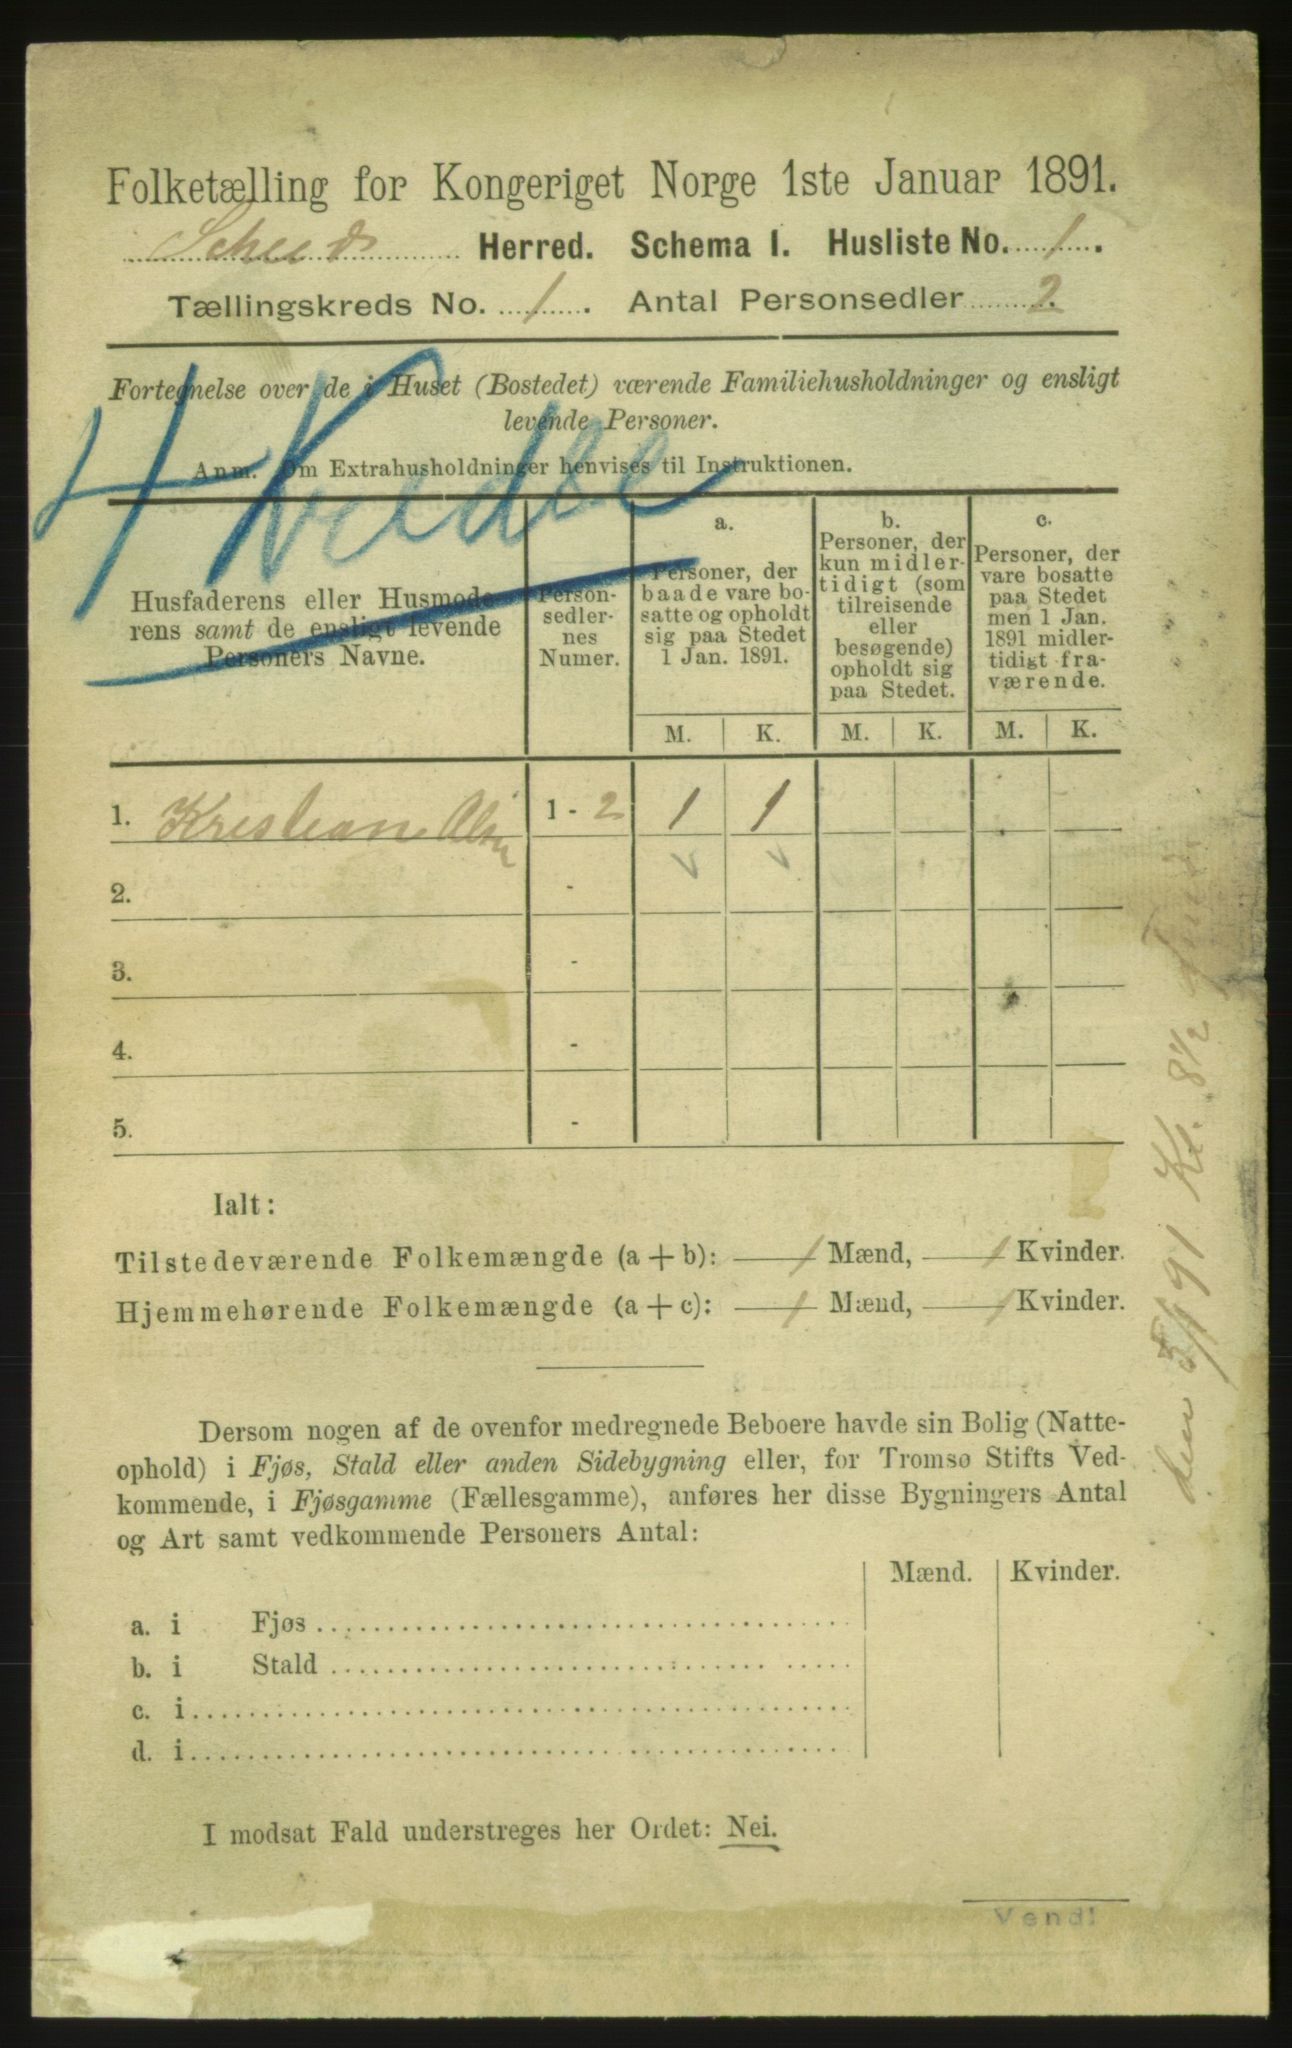 Folketælling for Kongeriget Norge 1ste Januar 1891.
Scheeds Herred. Schema 1. Husliste No. 1.
Tællingskreds No. 1. Antal Personsedler 2.
Fortegnelse over de i Huset (Bostedet) værende Familiehusholdninger og ensligt
levende Personer.
Anm. Om Extrahusholdninger henvises til Instruktionen.
Husfaderens eller Husmode-
rens samt de ensligt levende
Personers Navne.
Person-
sedler-
nes
Numer.
a.
Personer, der
baade vare bo-
satte og opholdt
sig paa Stedet
1 Jan. 1891.
b.
Personer, der
kun midler-
tidigt (som
tilreisende
eller
besøgende)
opholdt sig
paa Stedet.
c.
Personer, der
vare bosatte
paa Stedet
men 1 Jan.
1891 midler-
tidigt fra-
værende.
M. K. M. K. M. K.
1. Kristian Olsen 1 - 2 1 1
2. -
3. -
4. -
5. -
Ialt:
Tilstedeværende Folkemængde (a + b): 1 Mænd, 1 Kvinder.
Hjemmehørende Folkemængde (a + c): 1 Mænd, 1 Kvinder.
Dersom nogen af de ovenfor medregnede Beboere havde sin Bolig (Natte-
ophold) i Fjøs, Stald eller anden Sidebygning eller, for Tromsø Stifts Ved-
kommende, i Fjøsgamme (Fællesgamme), anføres her disse Bygningers Antal
og Art samt vedkommende Personers Antal:
Mænd. Kvinder.
a. i Fjøs
b. i Stald
c. i
d. i
I modsat Fald understreges her Ordet: Nei.
Vend!
den 5/1 91 Kl. 8½